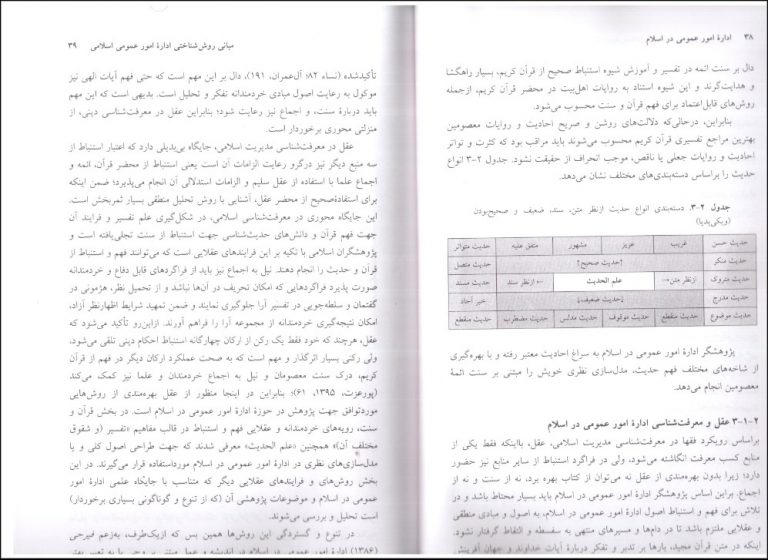 ۳۸ ادارهٔ امور عمومی در اسلام
دال بر سنت ائمه در تفسیر و آموزش شیوه استنباط صحیح از قرآن کریم، بسیار راهگشا
و هدایت‌گرند و این شیوه استناد به روایات اهل‌بیت در محضر قرآن کریم، ازجمله
روش‌های قابل‌اعتماد برای فهم قرآن و سنت محسوب می‌شود.
بنابراین، درحالی‌که دلالت‌های روشن و صریح احادیث و روایات معصومین
بهترین مراجع تفسیری قرآن کریم محسوب می‌شوند باید مراقب بود که کثرت و تواتر
احادیث و روایات جعلی یا ناقص، موجب انحراف از حقیقت نشود. جدول ۲-۳ انواع
حدیث را براساس دسته‌بندی‌های مختلف نشان می‌دهد.
جدول ۲-۳. دسته‌بندی انواع حدیث ازنظر متن، سند، ضعیف و صحیح‌بودن
(ویکی‌پدیا)
حدیث حسن غریب عزیز مشهور متفق علیه حدیث متواتر
حدیث منکر ↑حدیث صحیح↑ حدیث متصل
حدیث متروک ازنظر متن→ علم الحدیث ←ازنظر سند حدیث مسند
حدیث مدرج ↓حدیث ضعیف↓ خبر آحاد
حدیث موضوع حدیث منقطع حدیث موقوف حدیث مدلس حدیث مضطرب حدیث منقطع
پژوهشگر ادارهٔ امور عمومی در اسلام به سراغ احادیث معتبر رفته و با بهره‌گیری
از شاخه‌های مختلف فهم حدیث، مدل‌سازی نظری خویش را مبتنی بر سنت ائمهٔ
معصومین انجام می‌دهد.
۳-۱-۲ عقل و معرفت‌شناسی ادارهٔ امور عمومی در اسلام
براساس رویکرد فقها در معرفت‌شناسی مدیریت اسلامی، عقل، بااینکه فقط یکی از
منابع کسب معرفت انگاشته می‌شود، ولی در فراگرد استنباط از سایر منابع نیز حضور
دارد؛ زیرا بدون بهره‌مندی از عقل نه می‌توان از کتاب بهره برد، نه از سنت و نه از
اجماع. براین اساس پژوهشگر ادارهٔ امور عمومی در اسلام باید بسیار محتاط باشد و در
تلاش برای فهم و استنباط اصول ادارهٔ امور عمومی در اسلام، به اصول و مبادی منطقی
و عقلایی ملتزم باشد تا در دام‌ها و مسیرهای منتهی به سفسطه و التقاط گرفتار نشود.
اینکه در متن قرآن مجید، بارها بر تدبر و تفکر دربارهٔ آیات خداوند و جهان آفرینش
مبانی روش‌شناختی ادارهٔ امور عمومی اسلامی ۳۹
تأکیدشده (نساء ۸۲؛ آل‌عمران، ۱۹۱)، دال بر این مهم است که حتی فهم آیات الهی نیز
موکول به رعایت اصول مبادی خردمندانه تفکر و تحلیل است. بدیهی است که این مهم
باید دربارهٔ سنت، و اجماع نیز رعایت شود؛ بنابراین عقل در معرفت‌شناسی دینی، از
منزلتی محوری برخوردار است.
عقل در معرفت‌شناسی مدیریت اسلامی، جایگاه بی‌بدیلی دارد که اعتبار استنباط از
سه منبع دیگر نیز درگرو رعایت الزامات آن است یعنی استنباط از محضر قرآن، ائمه و
اجماع علما با استفاده از عقل سلیم و الزامات استدلالی آن انجام می‌پذیرد؛ ضمن اینکه
برای استفادهٔ‌صحیح از محضر عقل، آشنایی با روش تحلیل منطقی بسیار ثمربخش است.
این جایگاه محوری در معرفت‌شناسی اسلامی، در شکل‌گیری علم تفسیر و فرایند آن
جهت فهم قرآن و دانش‌های حدیث‌شناسی جهت استنباط از سنت تجلی‌یافته است و
پژوهشگران اسلامی با تکیه بر این فرایندهای عقلایی است که می‌توانند فهم و استنباط از
قرآن و حدیث را انجام دهند. نیل به اجماع نیز باید از فراگردهای قابل دفاع و خردمندانه
صورت پذیرد فراگردهایی که امکان تحریف در آن‌ها نباشد و از تحمیل نظر، هژمونی در
گفتمان و سلطه‌جویی در تفسیر آرا جلوگیری نمایند و ضمن تمهید شرایط اظهارنظر آزاد،
امکان نتیجه‌گیری خردمندانه از مجموعه آرا را فراهم آورند. ازاین‌رو تأکید می‌شود که
عقل، هرچند که خود فقط یک رکن از ارکان چهارگانه استنباط احکام دینی تلقی می‌شود،
ولی رکنی بسیار اثرگذار و مهم است که به صحت عملکرد ارکان دیگر در فهم از قرآن
کریم، درک سنت معصومان و نیل به اجماع خردمندان و علما نیز کمک می‌کند
(پورعزت، ۱۳۹۵، ۶۱)؛ بنابراین در اینجا منظور از عقل بهره‌مندی از روش‌هایی
موردتوافق جهت پژوهش در حوزهٔ ادارهٔ امور عمومی در اسلام است. در بخش قرآن و
سنت، رویه‌های خردمندانه و عقلایی فهم و استنباط در قالب مفاهیم «تفسیر (و شقوق
مختلف آن)» همچنین «علم الحدیث» معرفی شدند که جهت طراحی اصول کلی و یا
مدل‌سازی‌های نظری در ادارهٔ امور عمومی در اسلام مورداستفاده قرار می‌گیرند. در این
بخش روش‌های و فرایندهای عقلایی دیگر که متناسب با جایگاه علمی ادارهٔ امور
عمومی در اسلام و موضوعات پژوهشی آن (که از تنوع و گوناگونی بسیاری برخوردار)
است تحلیل و بررسی می‌شوند.
در تنوع و گستردگی این روش‌ها همین بس که ازیک‌طرف، به‌زعم فیرحی
(۱۳۸۶) ادارهٔ امور عمومی در اسلام در اندیشه و عمل مبتنی بر وحی یا به تعبیر بهتر